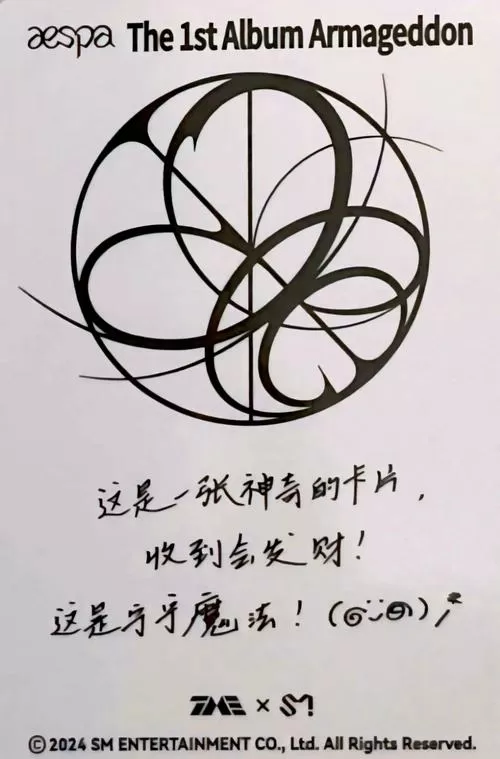 aespa The 1st Album Armageddon
这是一张神奇的卡片，
收到会发财！
这是宁宁魔法！
TME × SM
© 2024 SM ENTERTAINMENT CO., Ltd. All Rights Reserved.